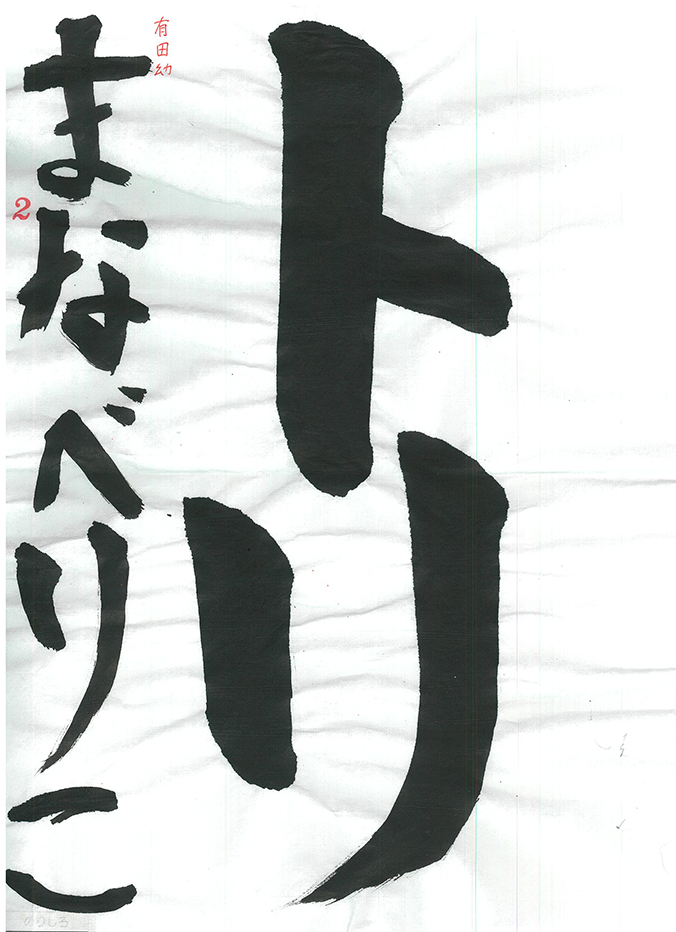 トリ
有田幼
まなべりこ
2